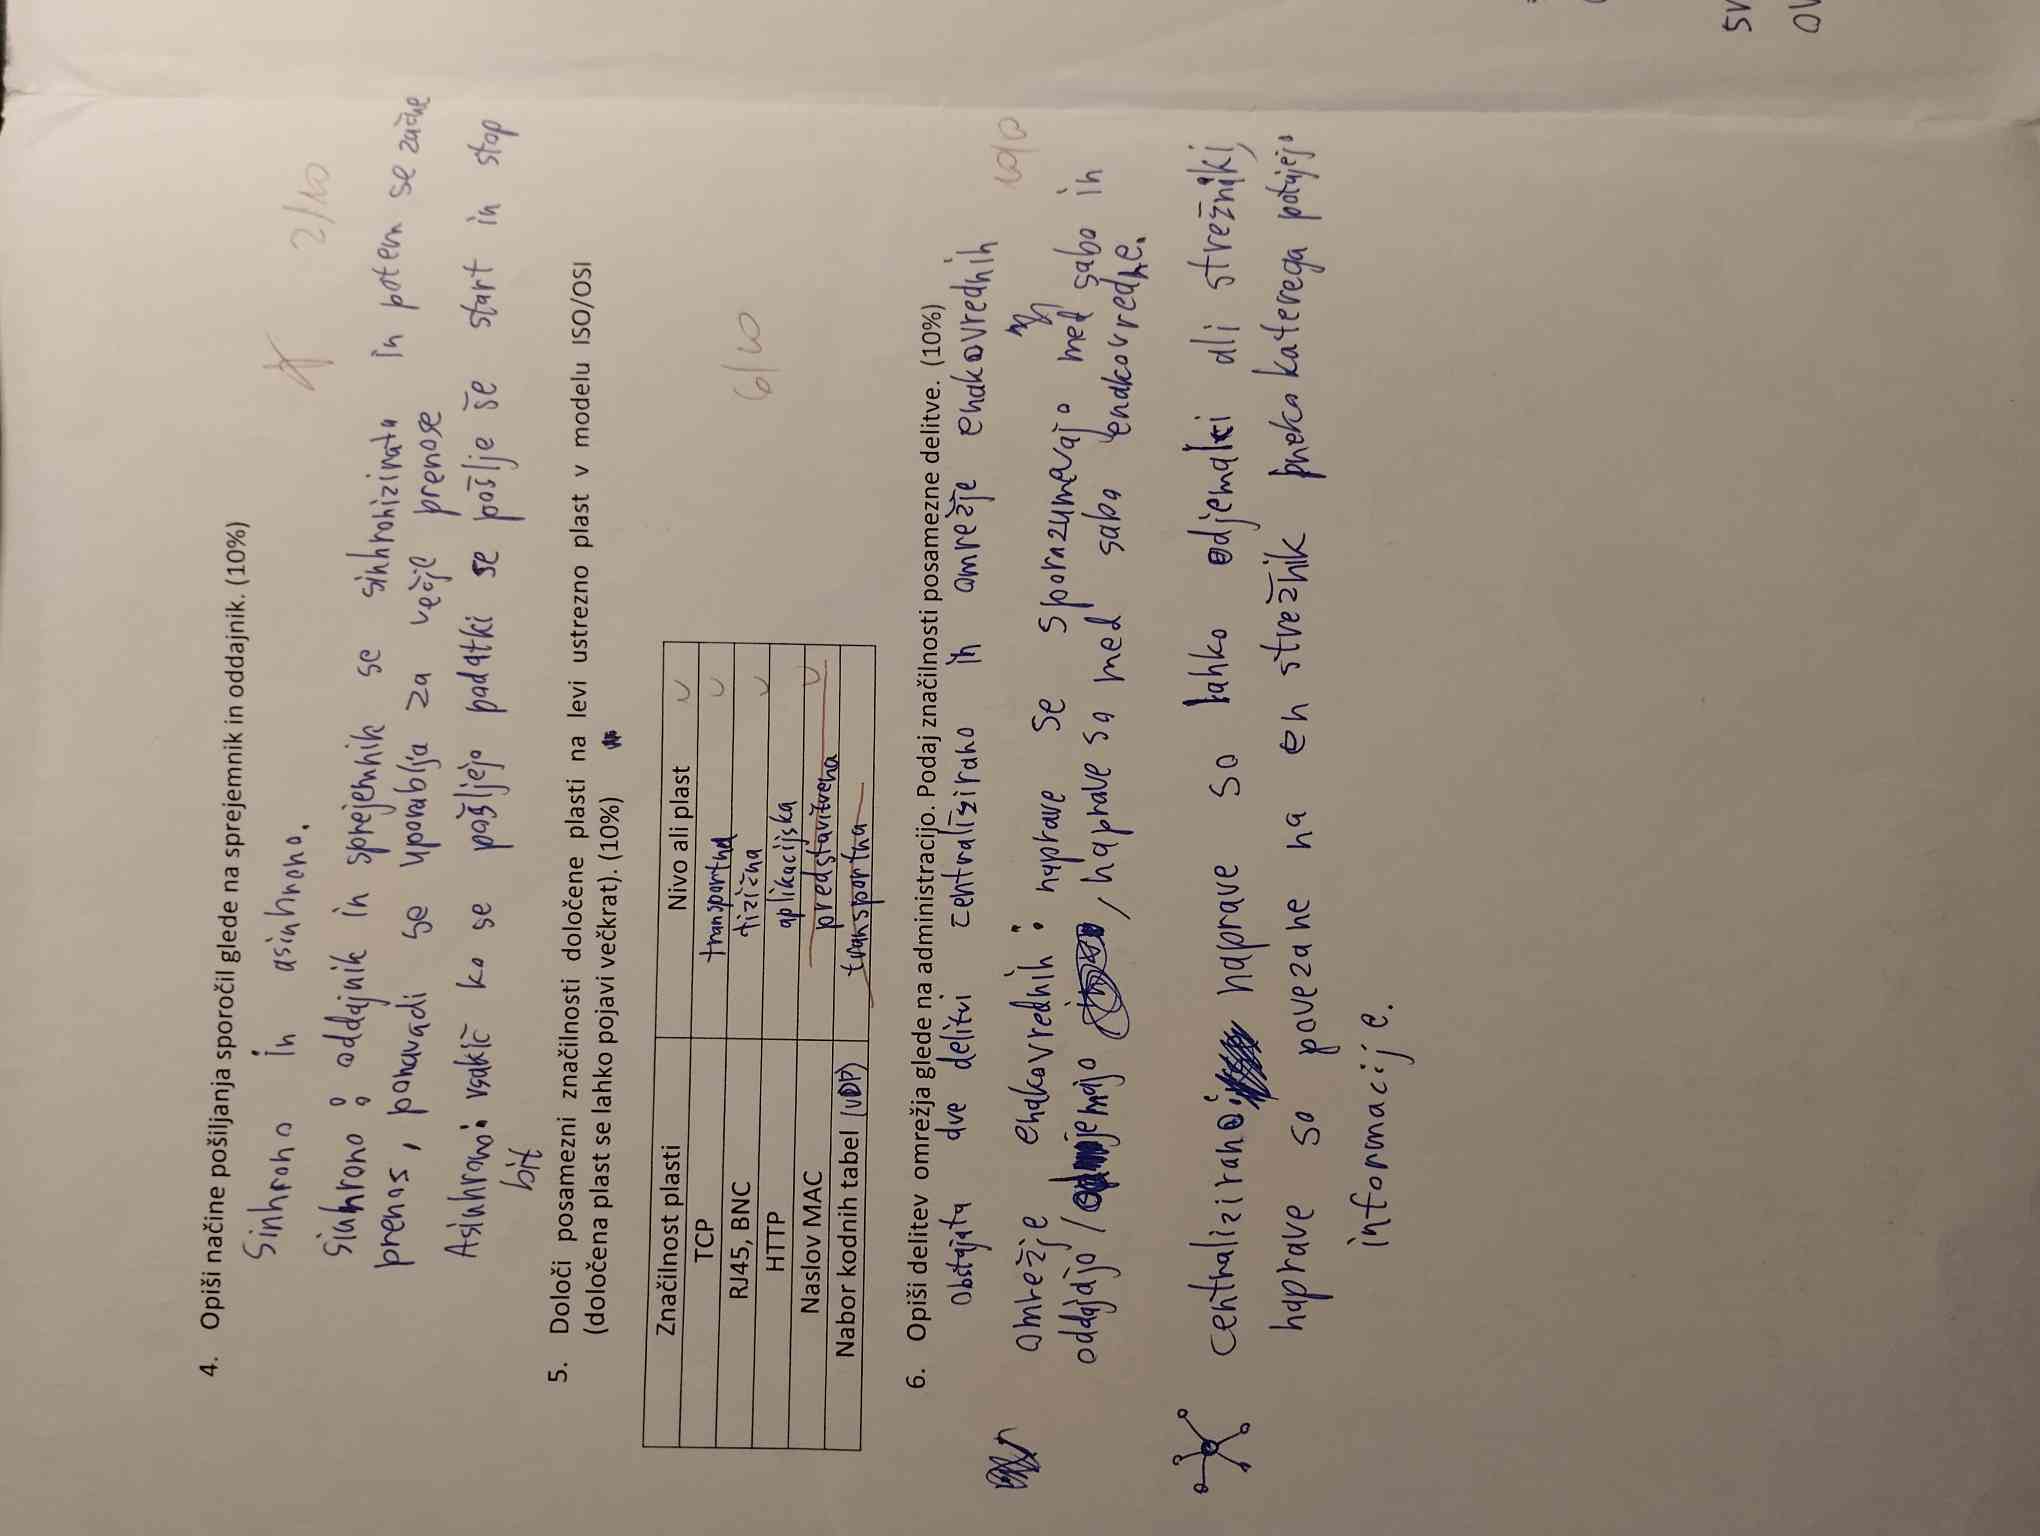 4. Opiši načine pošiljanja sporočil glede na sprejemnik in oddajnik. (10%)
Sinhrono in asinhrono.
2/10
sinhrono : oddajnik in sprejemnik se sinhronizirata in potem se začne
prenos, ponavadi se uporablja za večje prenose
Asinhrono: vsakič ko se pošljejo podatki se pošlje še start in stop
bit
5. Določi posamezni značilnosti določene plasti na levi ustrezno plast v modelu ISO/OSI
(določena plast se lahko pojavi večkrat). (10%)
Značilnost plasti Nivo ali plast
TCP transportna
RJ45, BNC fizična
6/10
HTTP aplikacijska
Naslov MAC predstavitvena
Nabor kodnih tabel (UDP) transportna
6. Opiši delitev omrežja glede na administracijo. Podaj značilnosti posamezne delitve. (10%)
obstajata dve delitvi centralizirano in omrežje enakovrednih
omrežje enakovrednih : naprave se sporazumevajo med sabo in
oddajajo / jemajo , naprave so med sabo enakovredne.
centralizirano: naprave so lahko odjemalci ali strežniki,
naprave so povezane na en strežnik preko katerega potujejo
informacije.
SV
OV